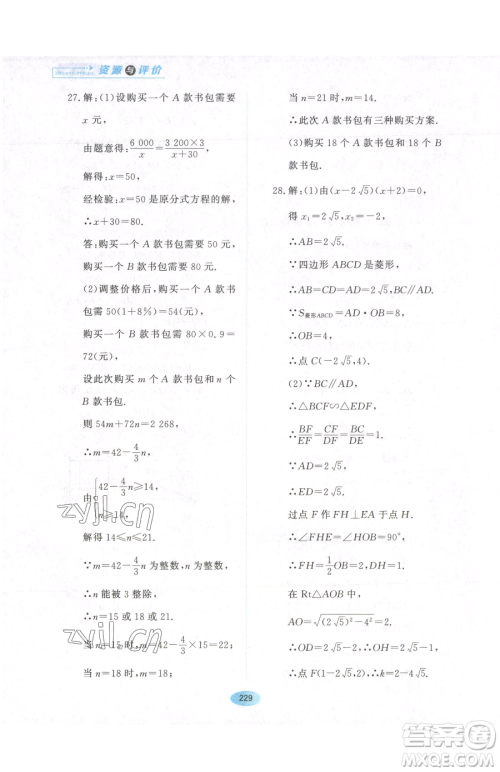 资源与评价
27.解:(1)设购买一个 A 款书包需要
x 元,
由题意得:6 000/x=3 200×3/(x+30).
解得:x=50.
经检验:x=50 是原分式方程的解.
∴x+30=80.
答:购买一个 A 款书包需要 50 元,
购买一个 B 款书包需要 80 元.
(2)调整价格后,购买一个 A 款书
包需 50(1+8%)=54(元),
购买一个 B 款书包需 80×0.9=
72(元),
设此次购买 m 个 A 款书包和 n 个
B 款书包.
则 54m+72n=2 268,
∴m=42-4/3 n,
由{42-4/3 n≥14,
n≥14.
解得 14≤n≤21.
∵m=42-4/3 n 为整数,n 为整数,
∴n 能被 3 整除,
∴n=15 或 18 或 21.
当 n=15 时,m=42-4/3×15=22;
当 n=18 时,m=18;
当 n=21 时,m=14.
∴此次 A 款有三种购买方案.
(3)购买 18 个 A 款和 18 个 B
款书包.
28.解:(1)由(x-2√5)(x+2)=0,
得 x₁=2√5,x₂=-2,
∴AD=2√5.
∵四边形 ABCD 是菱形,
∴AB=CD=2√5.
∵S菱形ABCD=AD·OB=8,
∴OB=4,
∴点 C(-2√5,4).
(2)∵BC∥AD,
∴△BCF∽△EDF,
∴BF/EF=CF/DF=BC/DE=1,
∴DE=2√5,
过点 F 作 FH⊥EA 于点 H,
∴∠FHE=∠HOB=90°,
∴FH=1/2 OB=2,
在 Rt△AOB 中,
AO=√((2√5)²-4²)=2.
∴OD=2√5-2,∴OH=2√5-1,
∴点 F(1-2√5,2),∴k=2-4√5.
229
zyjl.cn
zyjl.cn
作业精灵